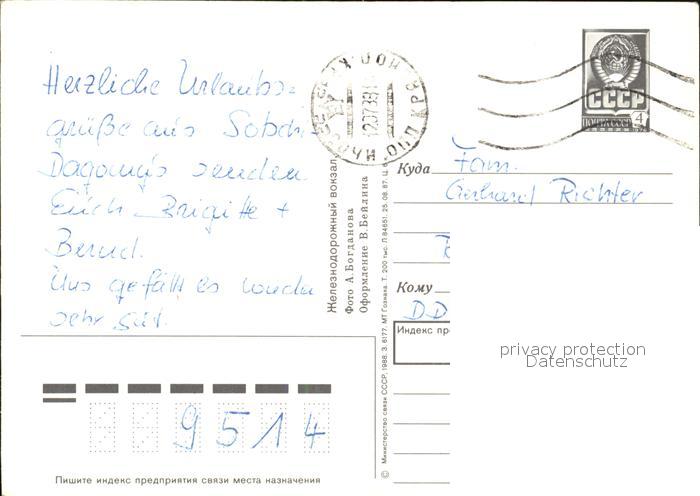 Herzliche Urlaubs=
grüße aus Sotschi
Dagomys senden
Erich Brigitte +
Bernd.
Uns gefällt es wieder
sehr gut.
Железнодорожный вокзал.
Фото А.Богданова
Оформление В.Бейлина
© Министерство связи СССР, 1988. З. 6177. МТ Гознака. Т. 200 тыс. Л 84651. 25.08.87. Ц. 6
СССР
ПОЧТА СССР
4
Куда Fam.
Gerhard Richter
Кому
DD
Индекс пре
privacy protection
Datenschutz
9514
Пишите индекс предприятия связи места назначения